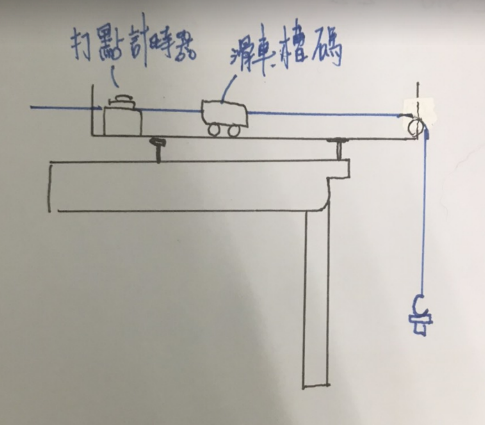 打點計時器
滑車槽碼